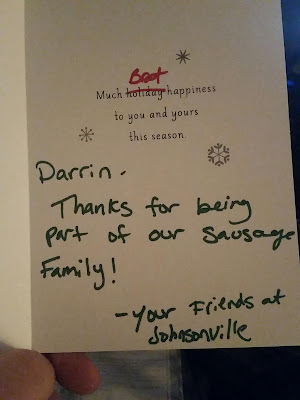 Brat
Much holiday happiness
to you and yours
this season.
Darrin -
Thanks for being
part of our sausage
Family!
- Your Friends at
Johnsonville